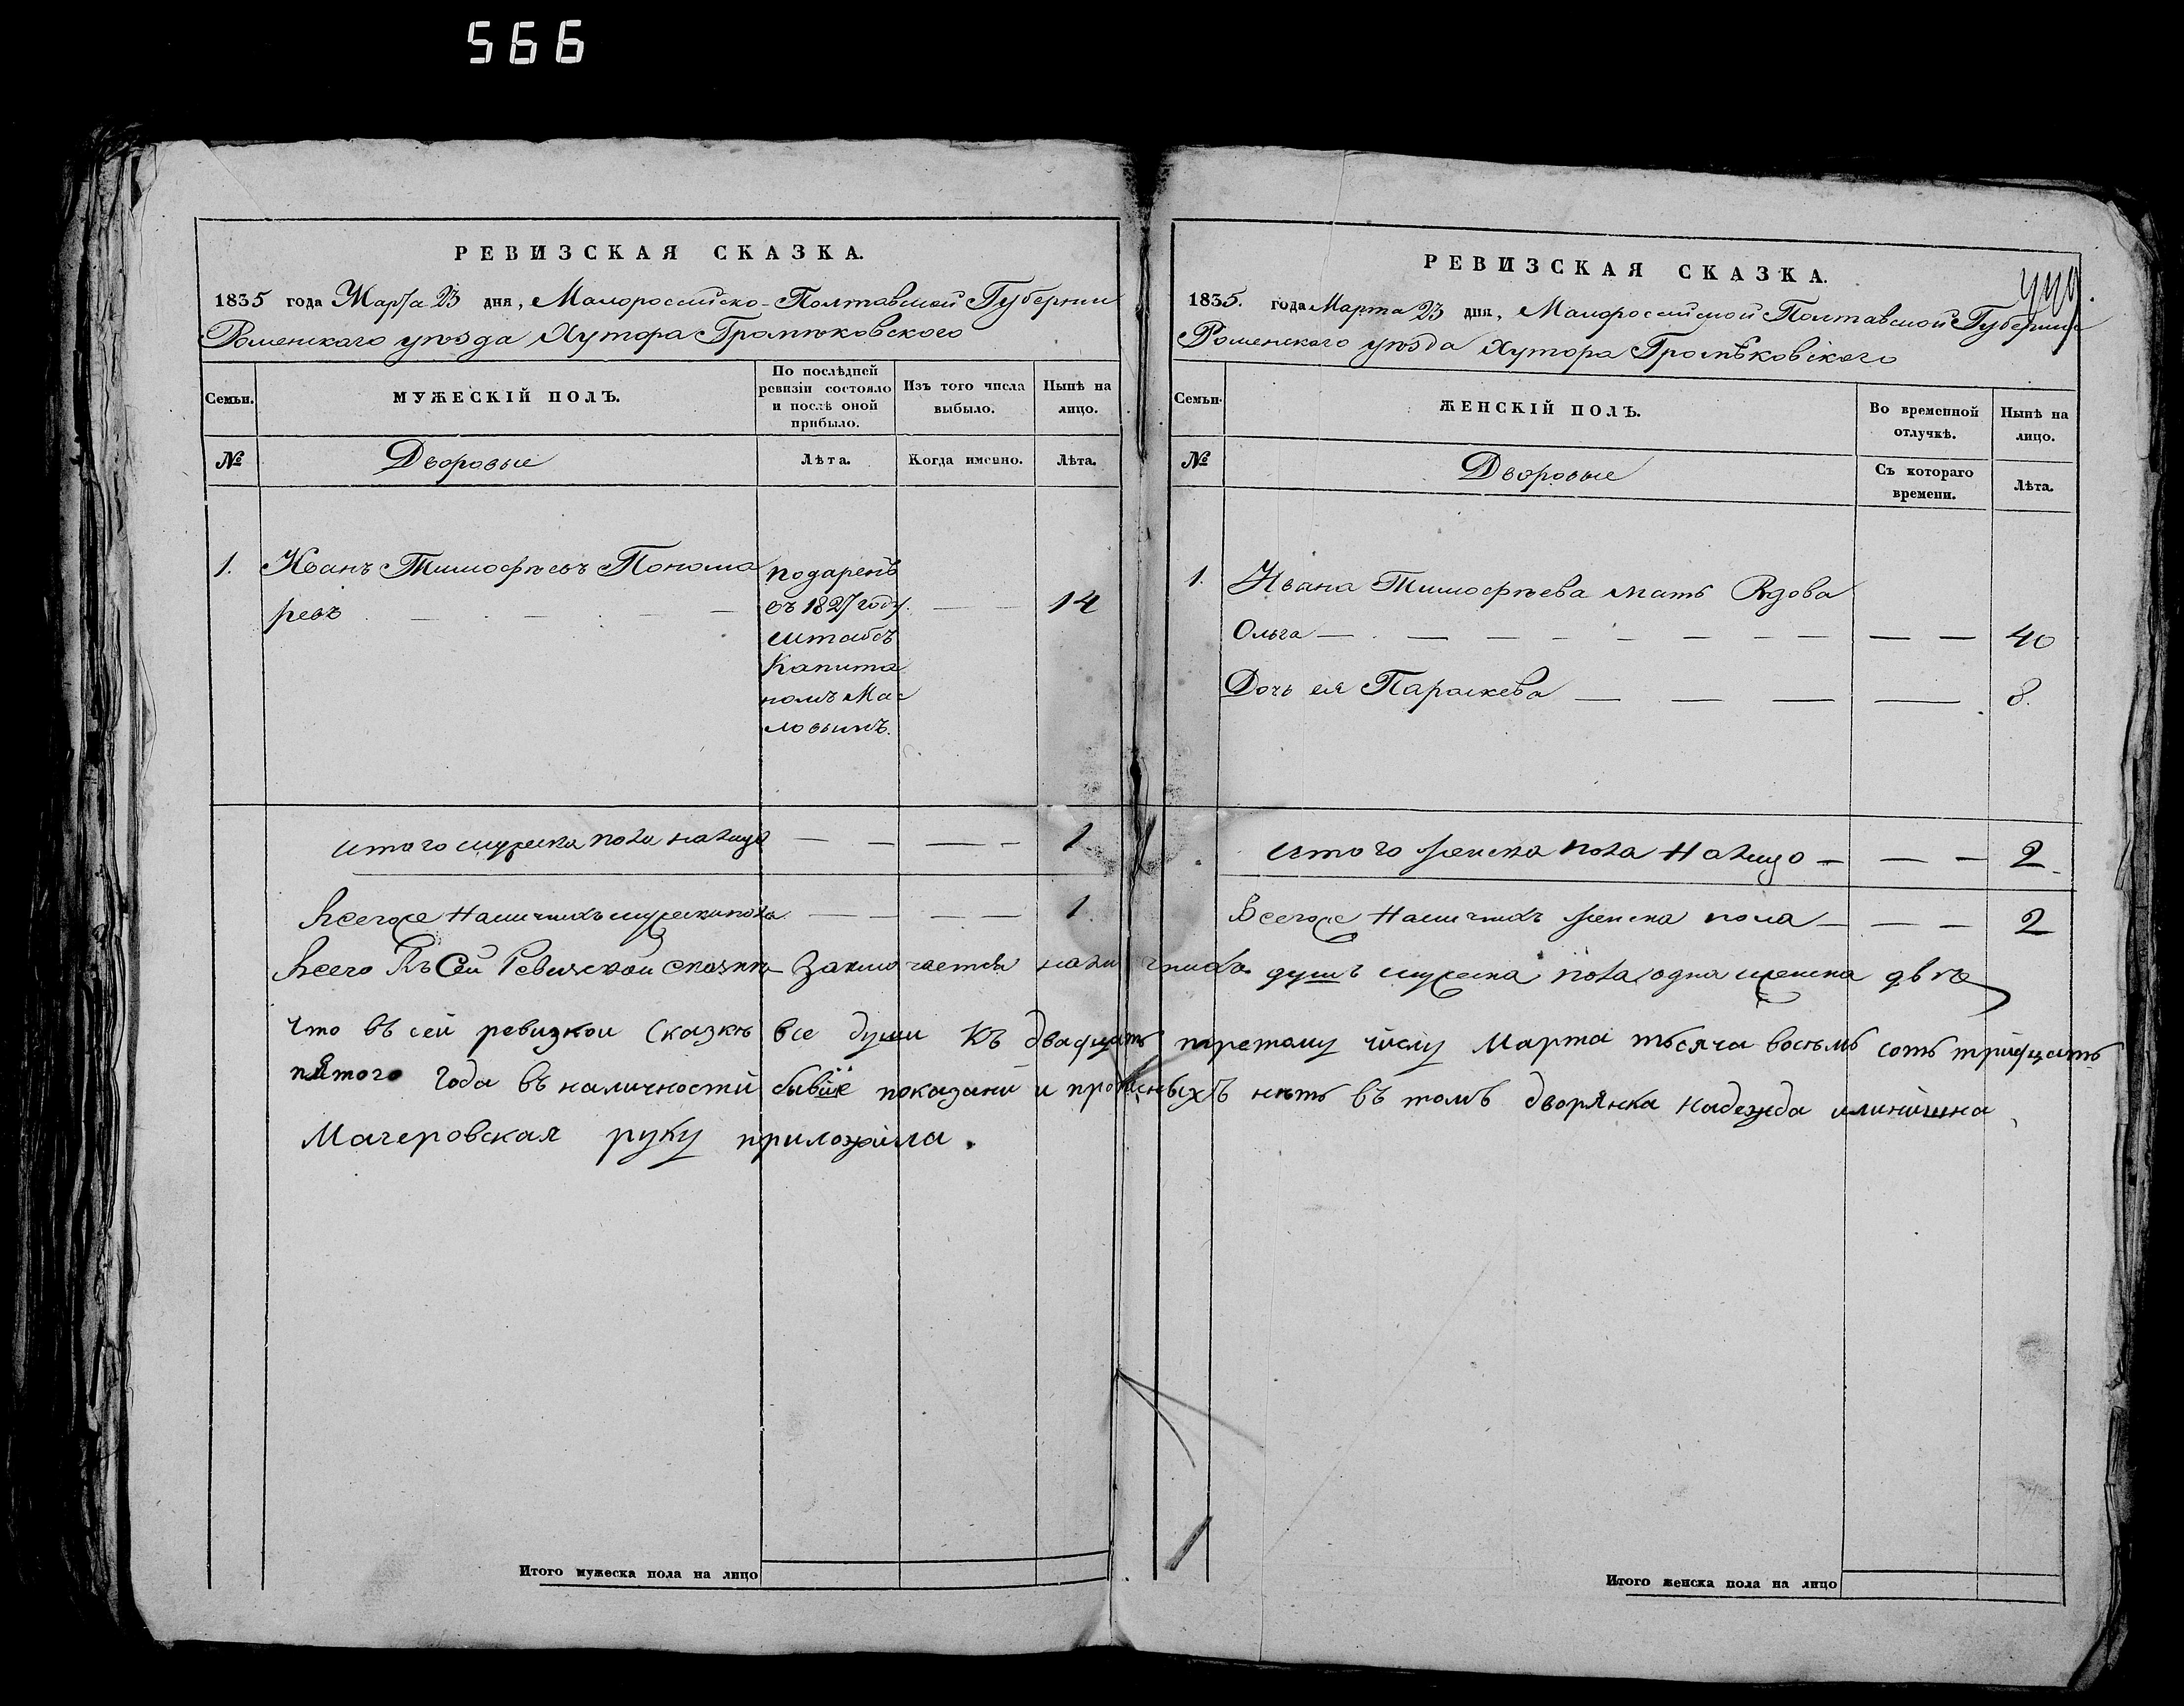 566
РЕВИЗСКАЯ СКАЗКА.
1835 года Марта 23 дня, Малороссийско-Полтавской Губернии
Роменскаго уѣзда Хутора Громѣковского
Семьи.
МУЖЕСКІЙ ПОЛЪ.
По послѣдней ревизіи состояло и послѣ оной прибыло.
Изъ того числа выбыло.
Нынѣ на лицо.
№
Дворовые
Лѣта.
Когда именно.
Лѣта.
1. Иванъ Тимофѣевъ Понома
ревъ
подаренъ
въ 1827 году
штабсъ
Капита
номъ Мас
ловымъ.
14
итого мужеска пола налицо 1
Всегоже Наличныхъ мужеска пола 1.
РЕВИЗСКАЯ СКАЗКА.
1835. года Марта 23 дня, Малороссийской Полтавской Губернии
Роменского уѣзда Хутора Громѣковского
Семьи.
ЖЕНСКІЙ ПОЛЪ.
Во временной отлучкѣ.
Нынѣ на лицо.
№
Дворовые
Съ котораго времени.
Лѣта.
1. Ивана Тимофѣева мать Вдова
Ольга 40
Дочь ея Параскева 8.
итого женска пола Налицо 2
Всегоже Наличныхъ женска пола 2
Всего Въ Сей Ревизской сказкѣ Заключается наличныхъ душъ мужеска пола одна женска двѣ
что въ сей ревизкои Сказкѣ все души къ двадцать третому числу Марта тысяча восемь соть трийцать
пятого года въ наличности бывшіе показани и прописныхъ нѣть въ томъ дворянка Надежда
Мачеровская руку приложила.
Итого мужеска пола на лицо
Итого женска пола на лицо